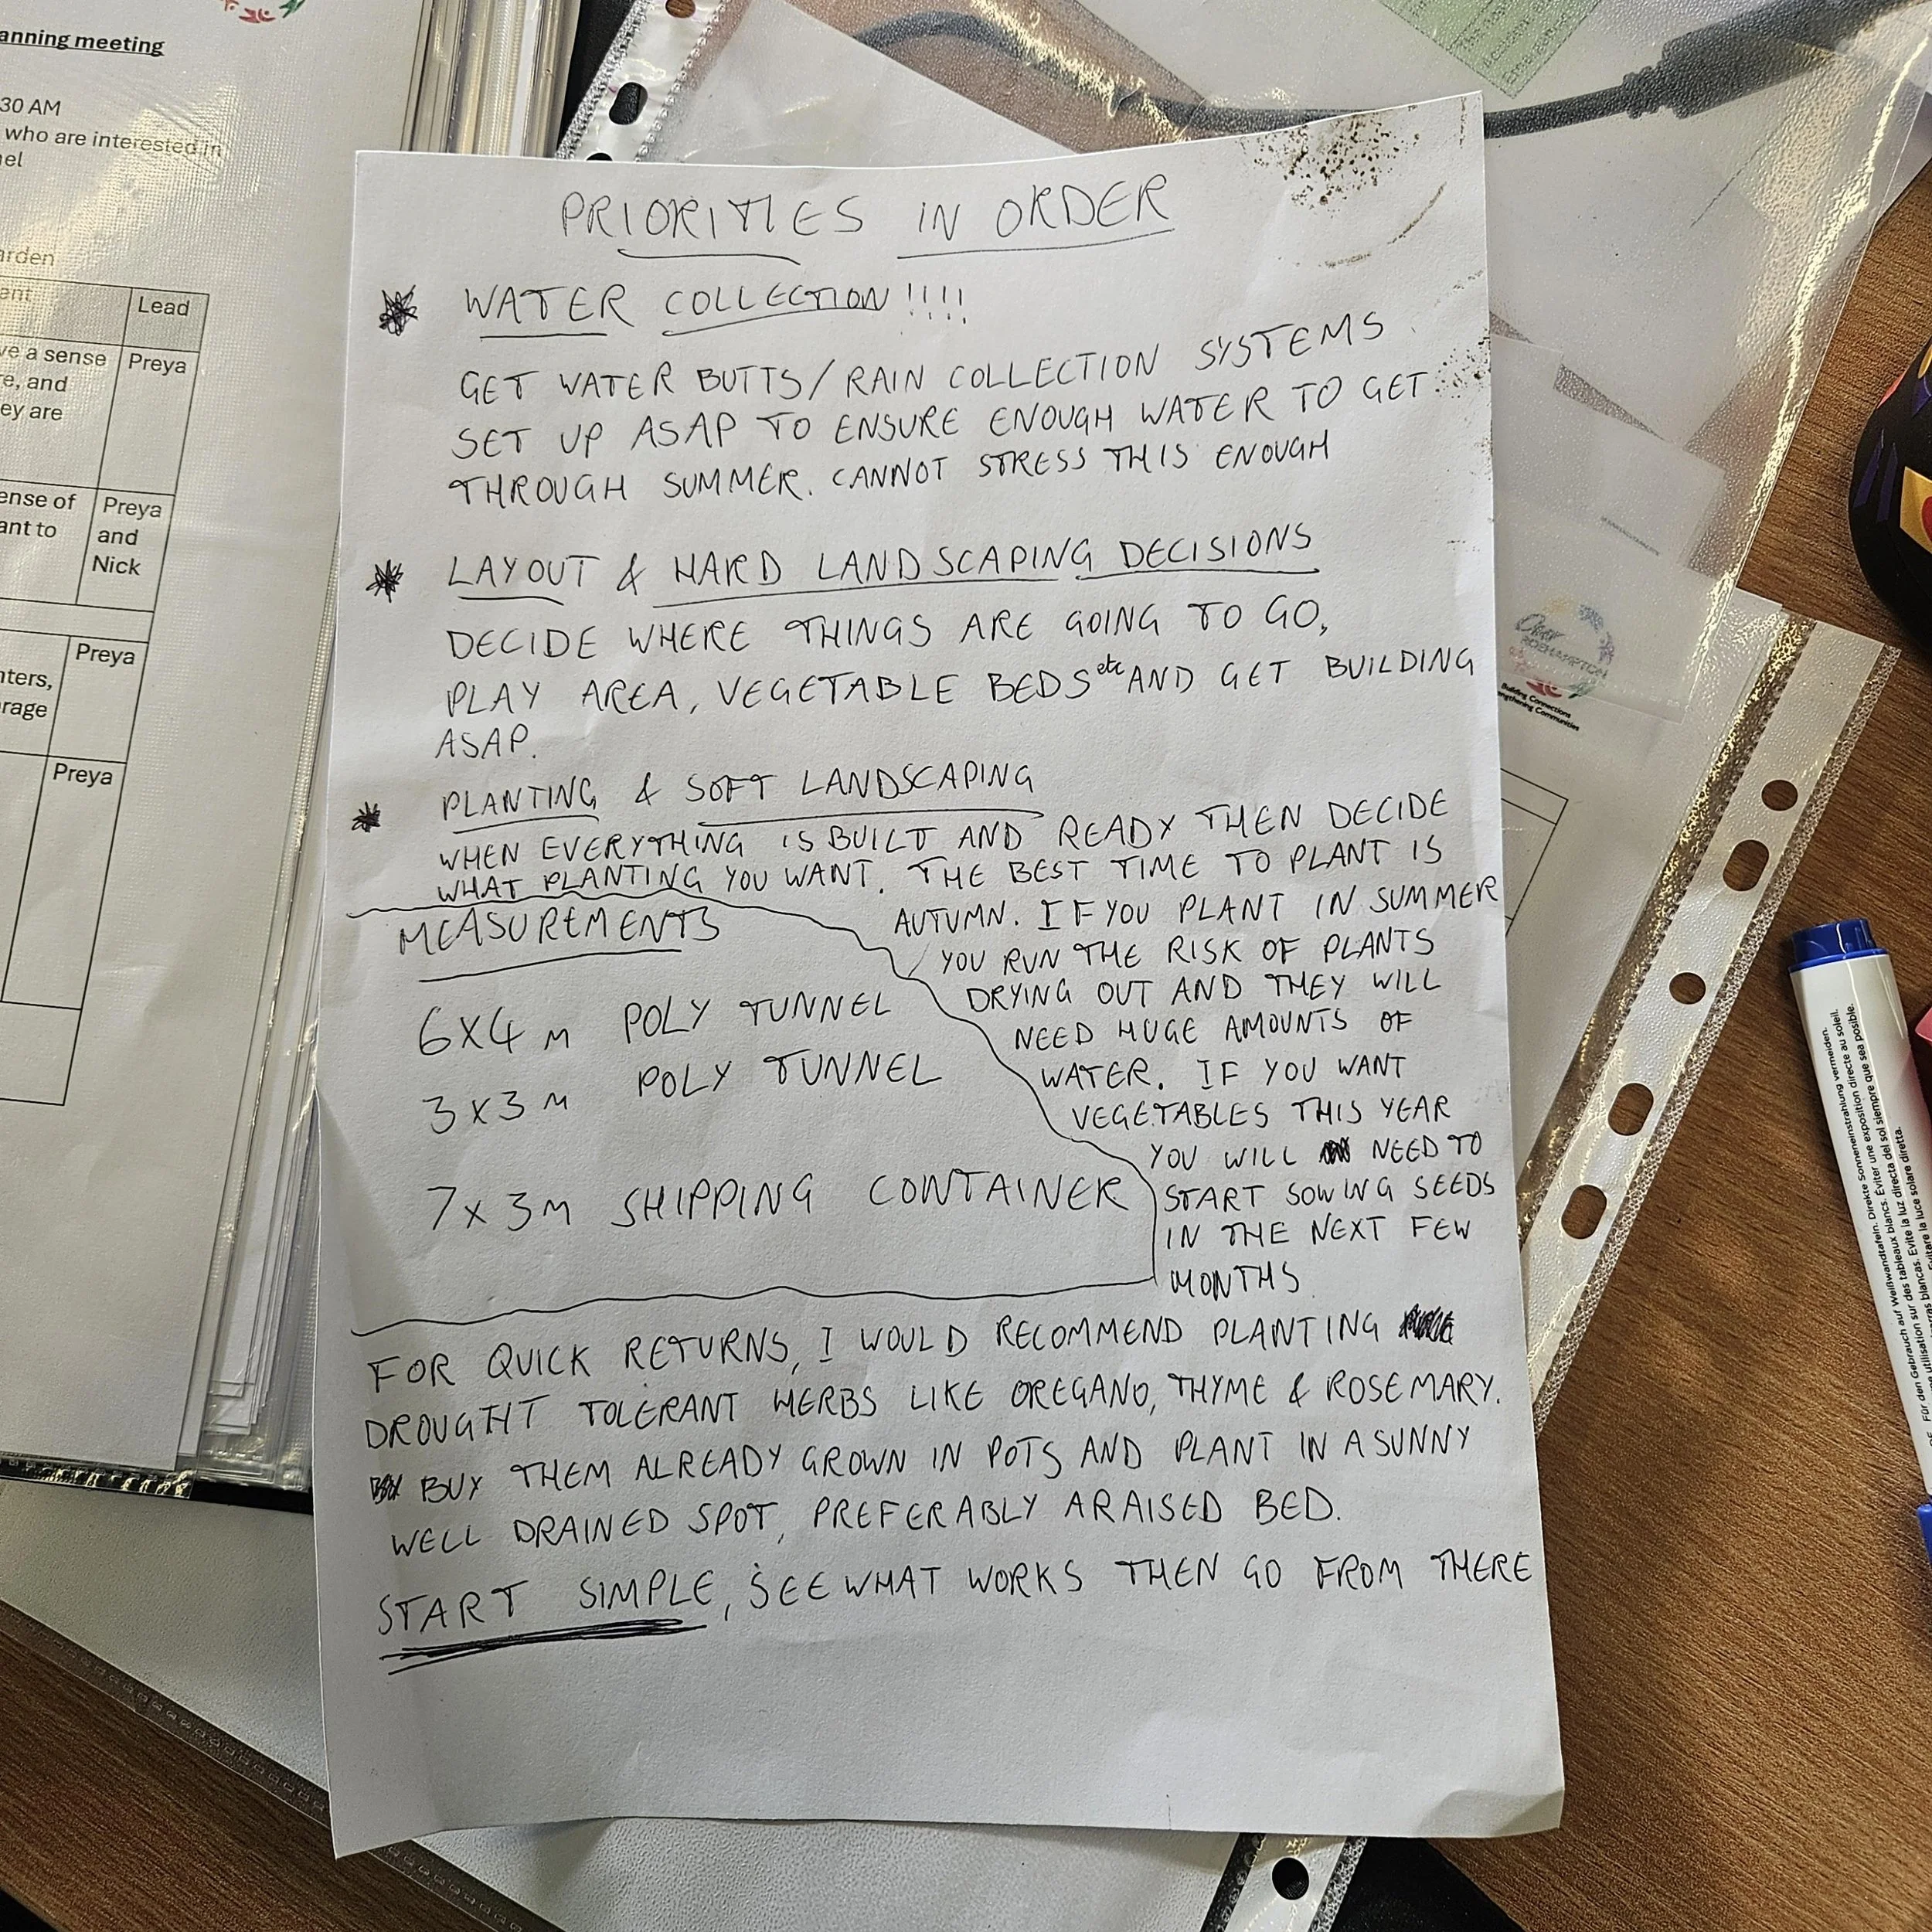 anning meeting
30 AM
who are interested in
nel
arden
ent
Lead
ve a sense
Preya
re, and
ey are
ense of
Preya
ant to
and
Nick
Preya
nters,
rage
Preya
PRIORITIES IN ORDER
WATER COLLECTION!!!!
GET WATER BUTTS/RAIN COLLECTION SYSTEMS
SET UP ASAP TO ENSURE ENOUGH WATER TO GET
THROUGH SUMMER. CANNOT STRESS THIS ENOUGH
LAYOUT & HARD LANDSCAPING DECISIONS
DECIDE WHERE THINGS ARE GOING TO GO,
PLAY AREA, VEGETABLE BEDS etc AND GET BUILDING
ASAP.
PLANTING & SOFT LANDSCAPING
WHEN EVERYTHING IS BUILT AND READY THEN DECIDE
WHAT PLANTING YOU WANT. THE BEST TIME TO PLANT IS
AUTUMN. IF YOU PLANT IN SUMMER
YOU RUN THE RISK OF PLANTS
DRYING OUT AND THEY WILL
NEED HUGE AMOUNTS OF
WATER. IF YOU WANT
VEGETABLES THIS YEAR
YOU WILL NEED TO
START SOWING SEEDS
IN THE NEXT FEW
MONTHS
MEASUREMENTS
6X4 M POLY TUNNEL
3X3M POLY TUNNEL
7X3M SHIPPING CONTAINER
FOR QUICK RETURNS, I WOULD RECOMMEND PLANTING
DROUGHT TOLERANT HERBS LIKE OREGANO, THYME & ROSEMARY.
BUY THEM ALREADY GROWN IN POTS AND PLANT IN A SUNNY
WELL DRAINED SPOT, PREFERABLY A RAISED BED.
START SIMPLE, SEE WHAT WORKS THEN GO FROM THERE
Over
ROEHAMPTON
Building Connections
engthening Communities
Für den Gebrauch auf Weißwandtafeln. Direkte Sonneneinstrahlung vermeiden.
utilisation sur des tableaux blancs. Éviter une exposition directe au soleil.
ras blancas. Evite la luz directa del sol siempre que sea posible.
Evitare la luce solare diretta.